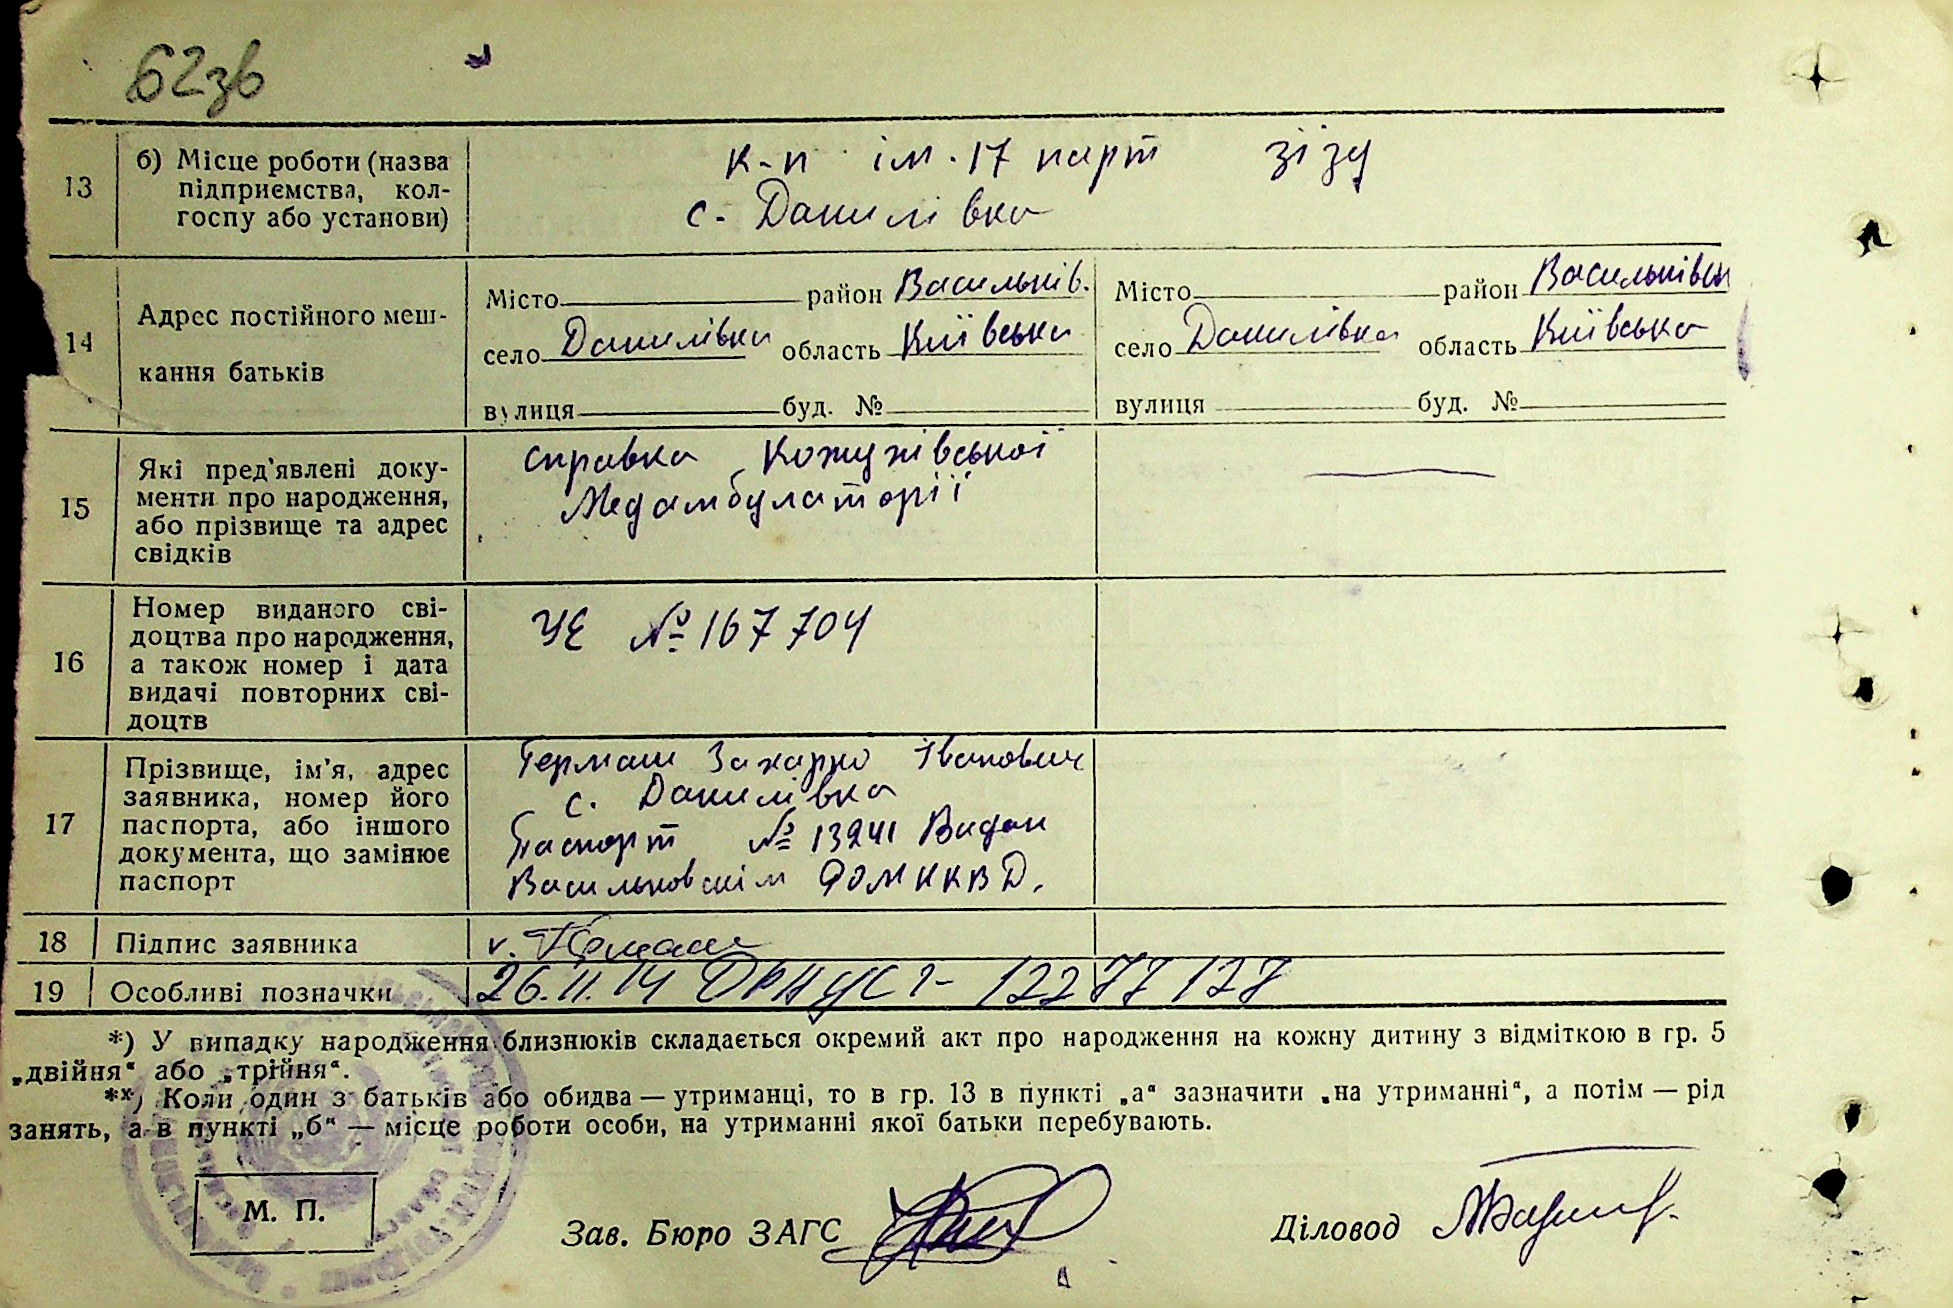 62зв
13
б) Місце роботи (назва
підприємства, кол-
госпу або установи)
к-п ім. 17 парт зізду
с. Данилівка
14
Адрес постійного меш-
кання батьків
Місто район Васильків.
село Данилівка область Київська
вулиця буд. №
Місто район Васильківськ
село Данилівка область Київська
вулиця буд. №
15
Які пред'явлені доку-
менти про народження,
або прізвище та адрес
свідків
справка Кожухівської
Медамбулаторії
16
Номер виданого сві-
доцтва про народження,
а також номер і дата
видачі повторних сві-
доцтв
УЄ № 167704
17
Прізвище, ім'я, адрес
заявника, номер його
паспорта, або іншого
документа, що замінює
паспорт
Гермаш Захарко Іванович
с. Данилівка
Паспорт № 13941 Видан
Васильковскім РОМНКВД.
18
Підпис заявника
19
Особливі позначки
26.11.14 ДРНУСГ- 12277127
*) У випадку народження близнюків складається окремий акт про народження на кожну дитину з відміткою в гр. 5
„двійня“ або „трійня“.
**) Коли один з батьків або обидва — утриманці, то в гр. 13 в пункті „а“ зазначити „на утриманні“, а потім — рід
занять, а в пункті „б“ — місце роботи особи, на утриманні якої батьки перебувають.
М. П.
Зав. Бюро ЗАГС
Діловод